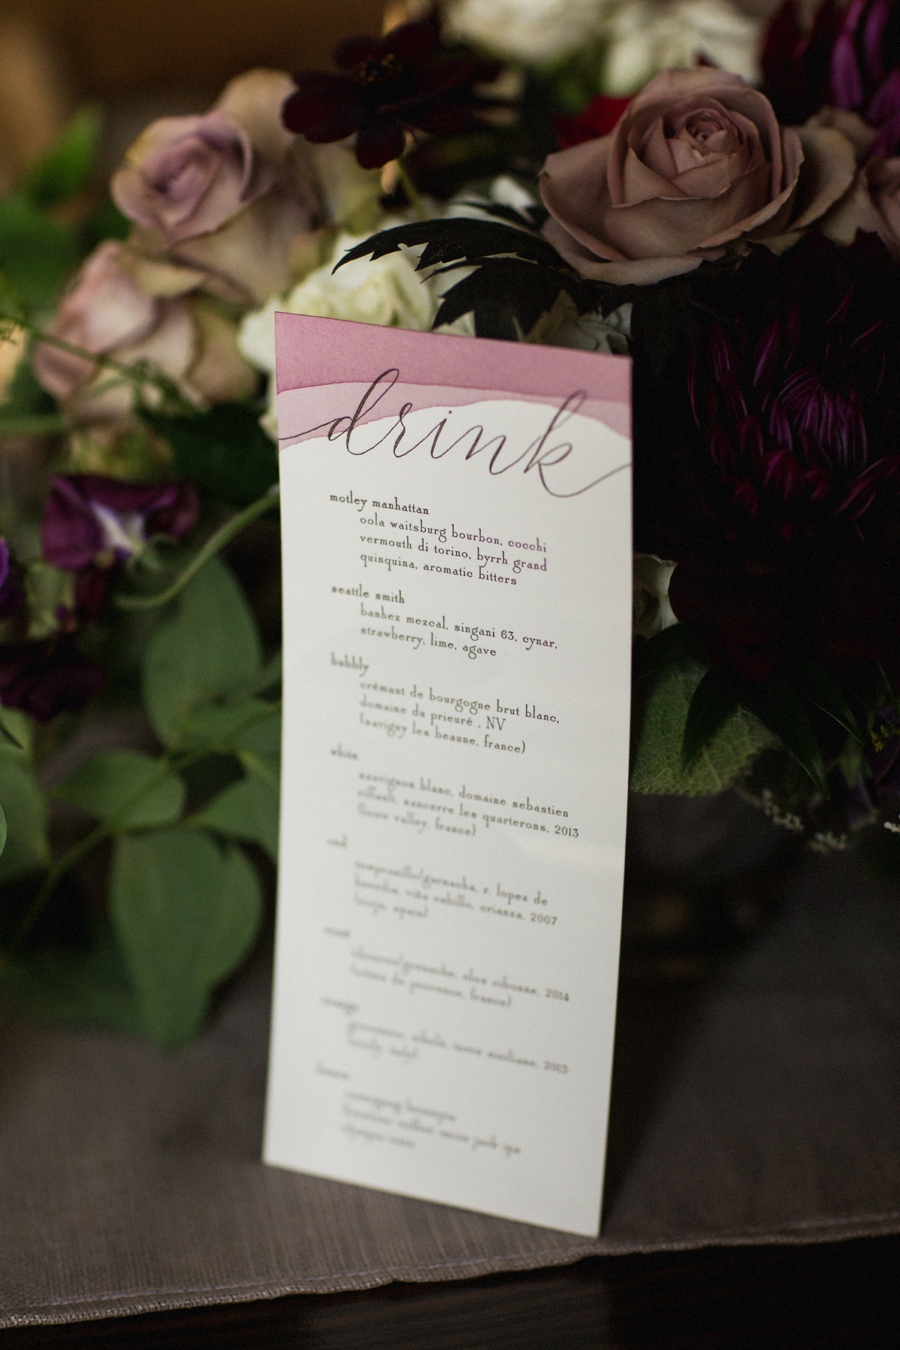 drink
motley manhattan
oola waitsburg bourbon, cocchi
vermouth di torino, byrrh grand
quinquina, aromatic bitters
seattle smith
banhez mezcal, singani 63, cynar,
strawberry, lime, agave
bubbly
crémant de bourgogne brut blanc,
domaine du prieuré , NV
(savigny les beaune, france)
white
sauvignon blanc, domaine sebastien
riffault, sancerre les quarterons, 2013
(loire valley, france)
red
tempranillo/garnacha, r. lopez de
heredia, viña cubillo, crianza, 2007
(rioja, spain)
2014
provence, france)
orange
2013